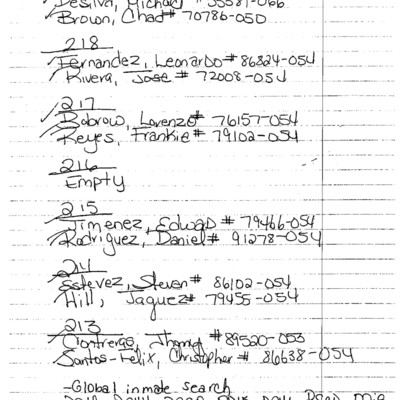 Brown, Chad # 70786-050
218
Fernandez, Leonardo # 86824-054
Rivera, Jose # 72008-054
217
Bobrow, Lorenzo # 76157-054
Keyes, Frankie # 79102-054
216
Empty
215
Jimenez, Edward # 79466-054
Rodriguez, Daniel # 91278-054
214
Estevez, Steven # 86102-054
Hill, Jaquez # 79455-054
213
Contreras, # 89520-053
Santos-Felix, Christopher # 86638-054
-Global inmate search